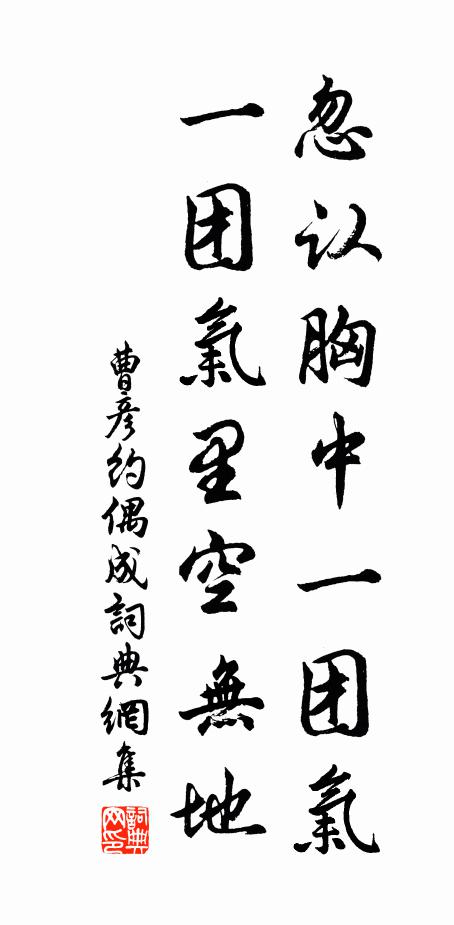 忽认胸中一团氣
一团氣里空無地
曹彦约偶成詞典網集
詞典网印